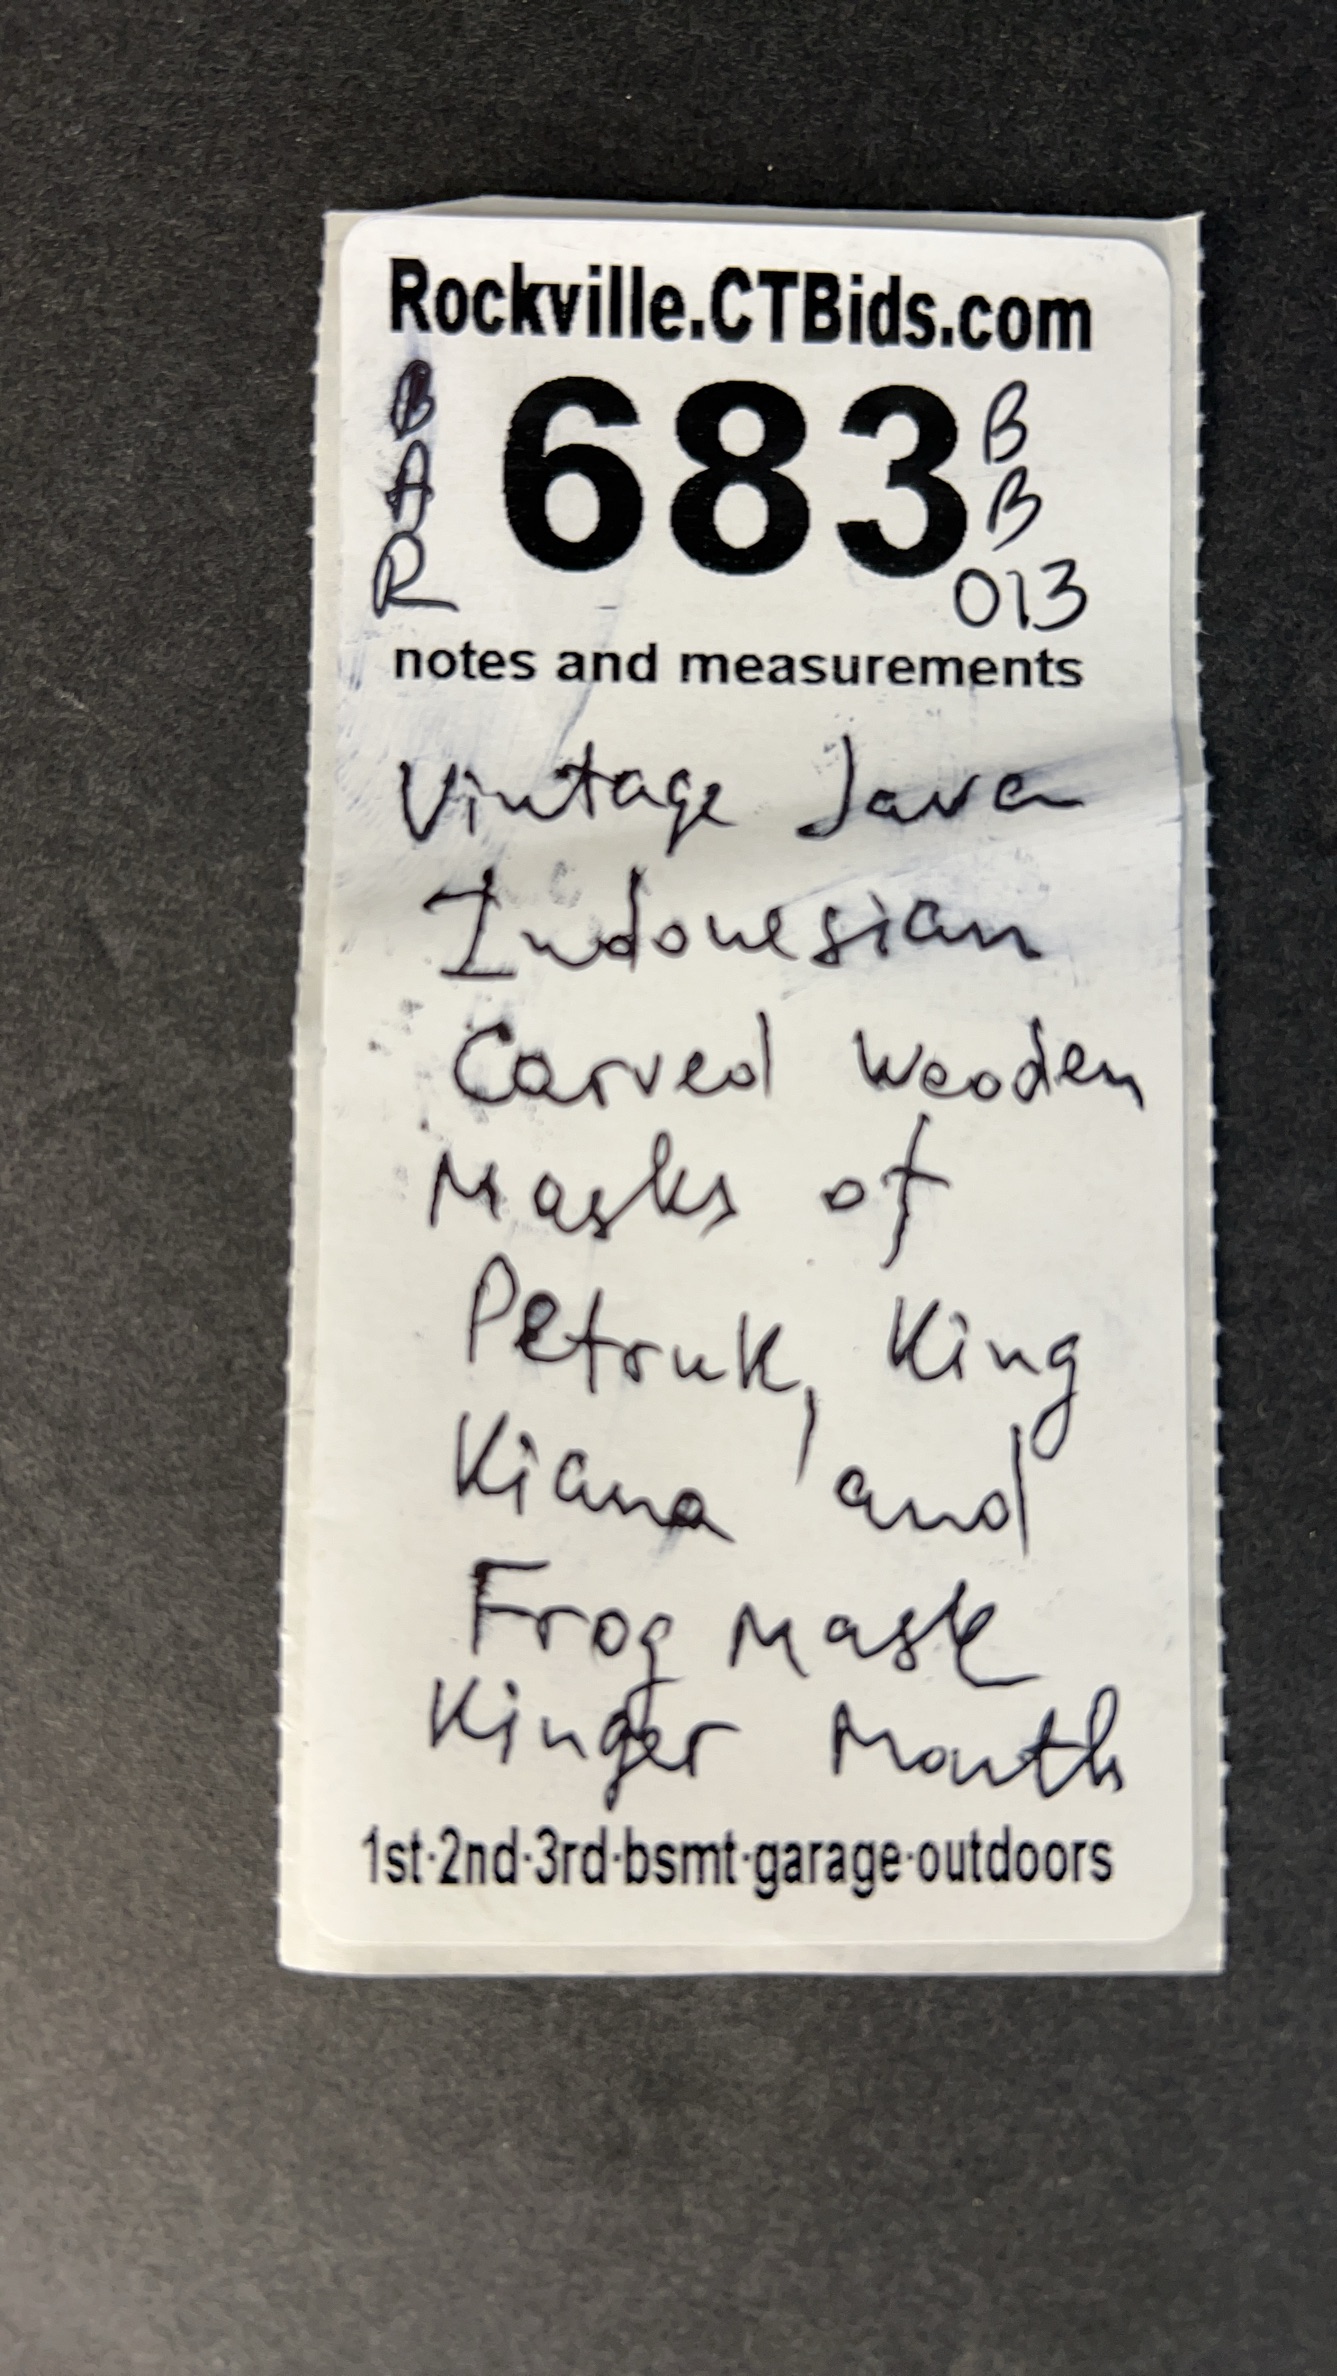 Rockville.CTBids.com
BAR
683
BB
013
notes and measurements
Vintage Java
Indonesian
Carved Wooden
Masks of
Petruk, King
Kiana and
Frog Mask
Kinger Mouth
1st·2nd·3rd·bsmt·garage·outdoors